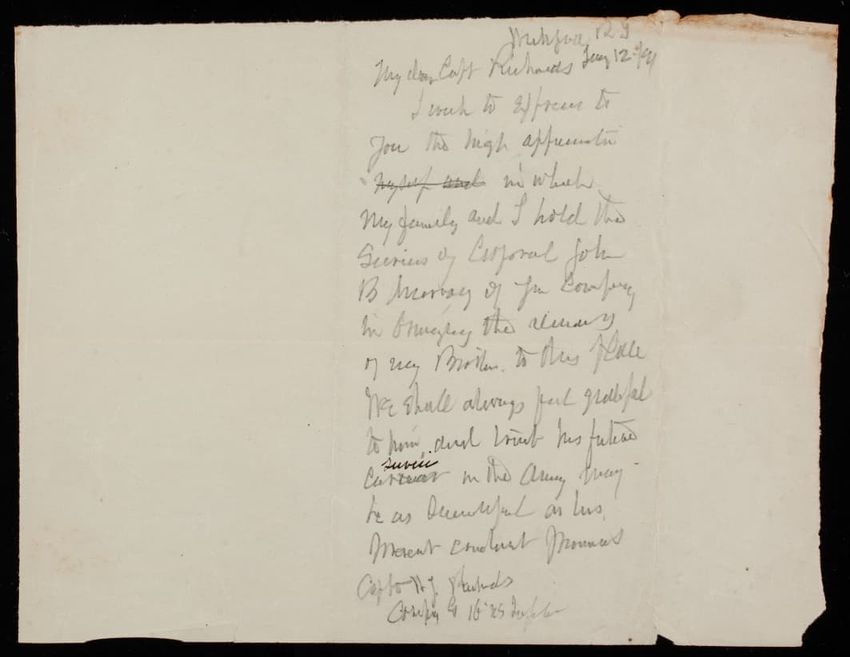 My dear Capt Richards Jany 12
I wish to express to
you the high appreciation
myself and in which
My family and I hold the
Services of Corporal John
B Murray of your Company
in bringing the remains
of my Brother to this place
We shall always feel grateful
to him and trust his future
service
Career in the Army may
be as successful as his
present conduct promises
Capt Richards
Company G 16 US